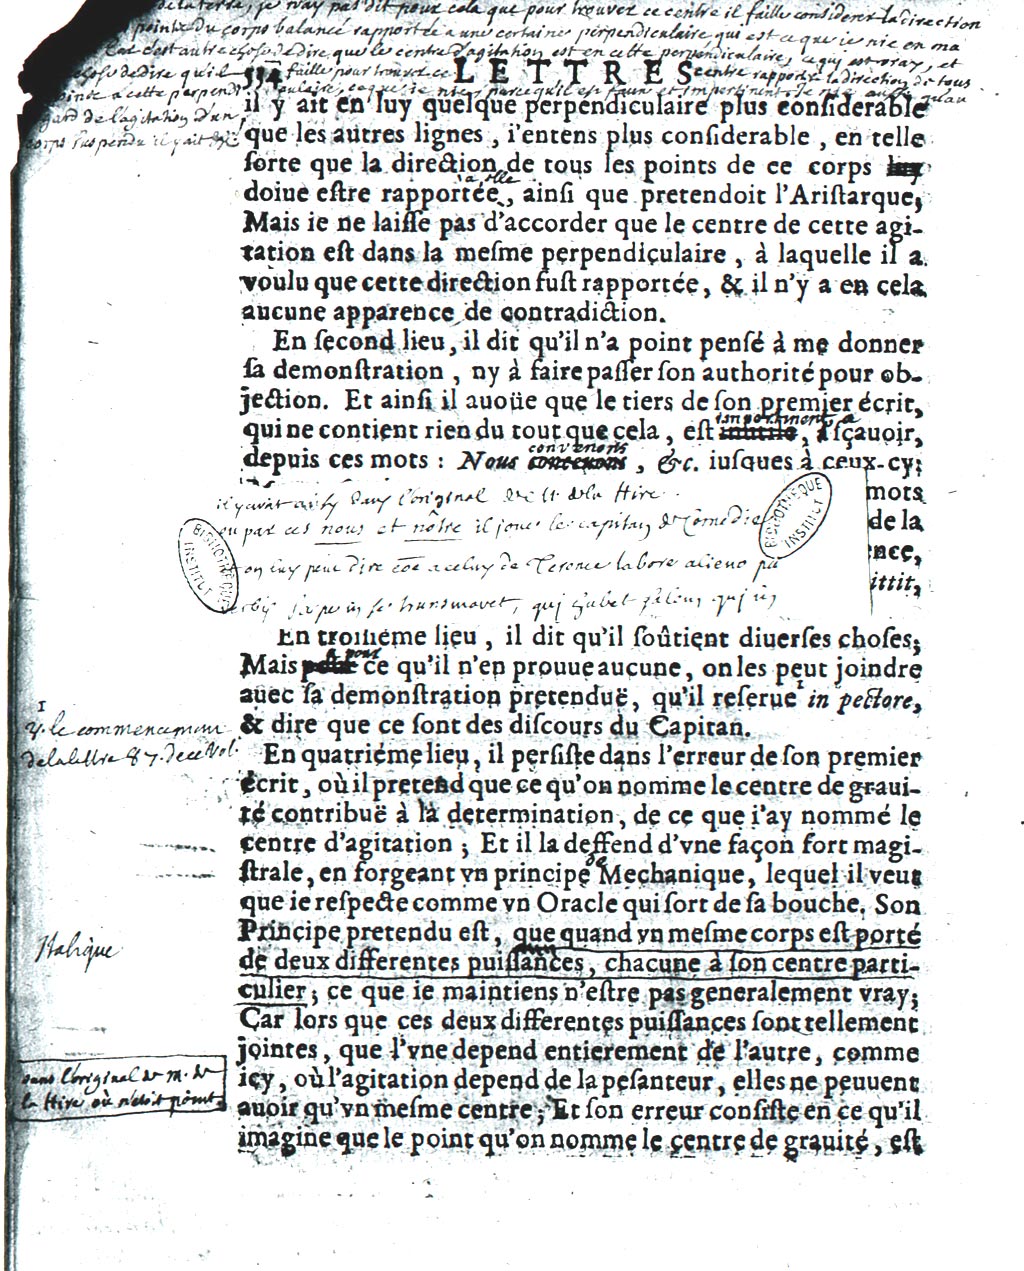 de la terre, je n'ay pas dit pour cela que pour trouver ce centre il faille considerer la direction
pointé du corps balancé rapportée a une certaine perpendiculaire qui est ce que ie nie en ma
Car c'est autre chose de dire que le centre d'agitation est en cette perpendiculaire, ce qui est vray, et
chose de dire qu'il faille pour trouver ce centre rapporter la direction de tous
514 LETTRES
a cette perpendiculaire, ce que ie nie, parce qu'il est faux et impertinent
gard de l'agitation d'un
corps suspendu il y ait
il y ait en luy quelque perpendiculaire plus conſiderable
que les autres lignes, i'entens plus conſiderable, en telle
ſorte que la direction de tous les points de ce corps luy
a elle
doiue eſtre rapportée, ainſi que pretendoit l'Ariſtarque;
Mais ie ne laiſſe pas d'accorder que le centre de cette agi-
tation eſt dans la meſme perpendiculaire, à laquelle il a
voulu que cette direction fuſt rapportée, & il n'y a en cela
aucune apparence de contradiction.
En ſecond lieu, il dit qu'il n'a point penſé à me donner
ſa demonſtration, ny à faire paſſer ſon authorité pour ob-
jection. Et ainſi il auoüe que le tiers de ſon premier écrit,
impertinent, a
qui ne contient rien du tout que cela, eſt inutile, à ſçauoir,
convenons
depuis ces mots: Nous conceuons, &c. iuſques à ceux-cy;
il y avait ainsy dans l'original de M. de la Hire.
mots
ou par ces nous et nôtre il joue le capitan de Comedie
de la
on luy peut dire côe a celuy de Terence labore alieno
nce,
ittit,
BIBLIOTHEQUE INSTITUT
BIBLIOTHEQUE INSTITUT
En troiſiéme lieu, il dit qu'il ſoûtient diuerſes choſes;
a pour
Mais pour ce qu'il n'en prouue aucune, on les peut joindre
auec ſa demonſtration pretenduë, qu'il reſerue 1 in pectore,
& dire que ce ſont des diſcours du Capitan.
1
V. le commencement
de la lettre 87. de ce Vol.
En quatriéme lieu, il perſiſte dans l'erreur de ſon premier
écrit, où il pretend que ce qu'on nomme le centre de graui-
té contribuë à la determination, de ce que i'ay nommé le
centre d'agitation; Et il la deffend d'vne façon fort magi-
de
ſtrale, en forgeant vn principe Mechanique, lequel il veut
que ie reſpecte comme vn Oracle qui ſort de ſa bouche. Son
Principe pretendu eſt, que quand vn meſme corps eſt porté
Italique
de deux differentes puiſſances, chacune à ſon centre parti-
culier; ce que ie maintiens n'eſtre pas generalement vray;
Car lors que ces deux differentes puiſſances ſont tellement
jointes, que l'vne depend entierement de l'autre, comme
icy, où l'agitation depend de la peſanteur, elles ne peuuent
auoir qu'vn meſme centre; Et ſon erreur conſiſte en ce qu'il
imagine que le point qu'on nomme le centre de grauité, eſt
dans l'original de M. de
la Hire où n'etoit point